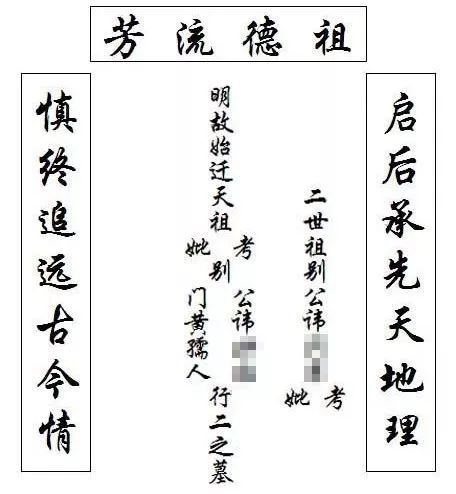 祖德流芳
启后承先天地理
二世祖别公讳
考妣
明故始迁天祖
考妣
别
公讳
门黄孺人
行二之墓
慎终追远古今情